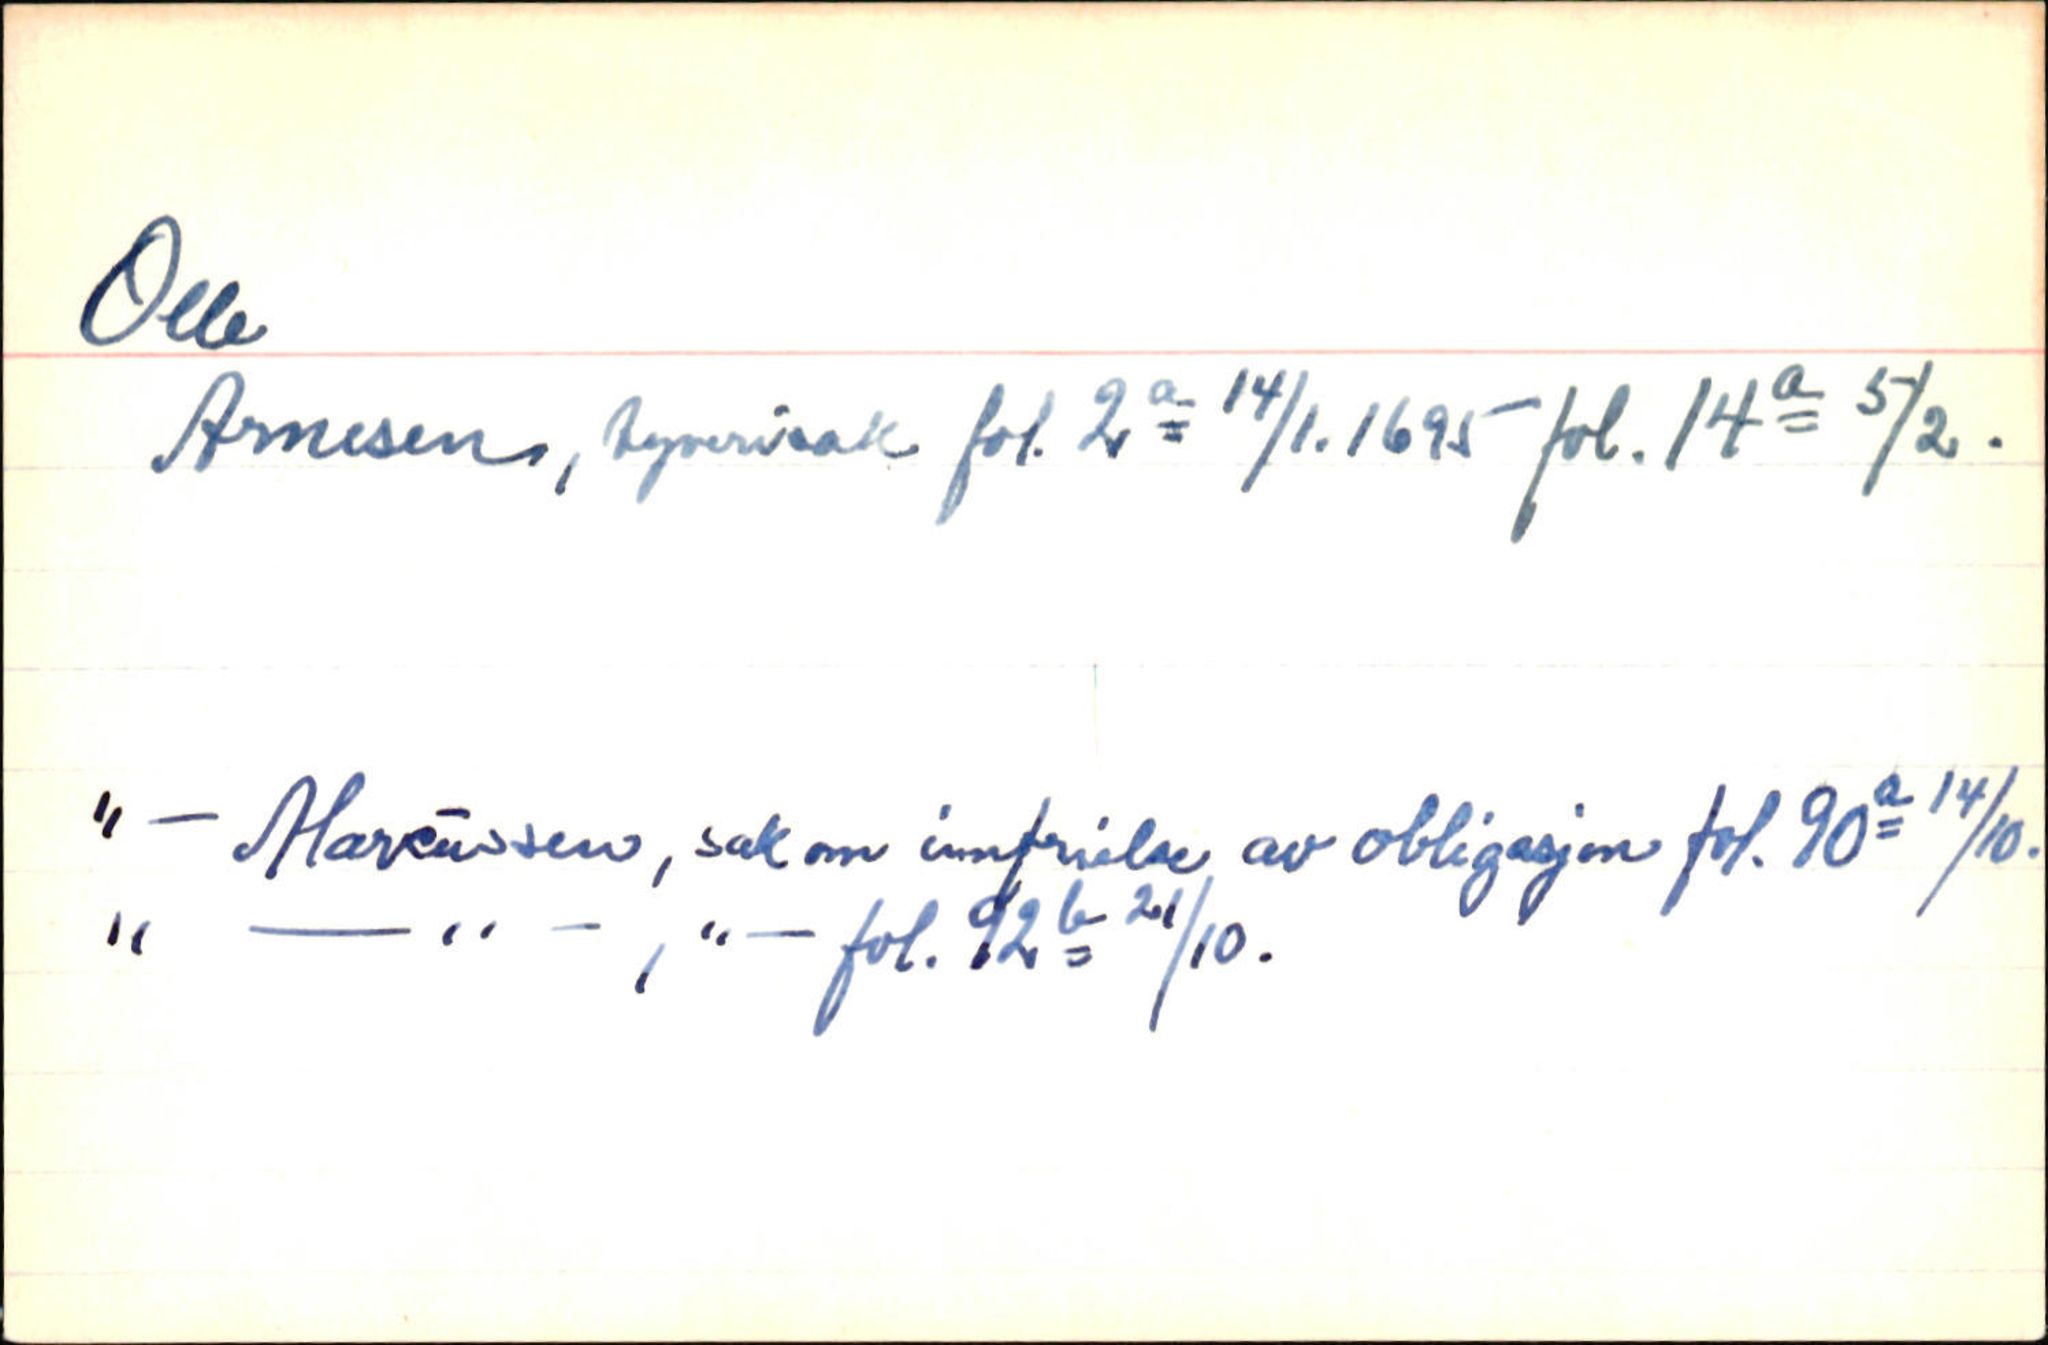 Olle
Arnesen, tyverisak fol. 2a 14/1. 1695 fol. 14a 5/2.
" — Markussen, sak om innfrielse av obligasjon fol. 90a 14/10.
" — " —, " — fol. 92b 21/10.